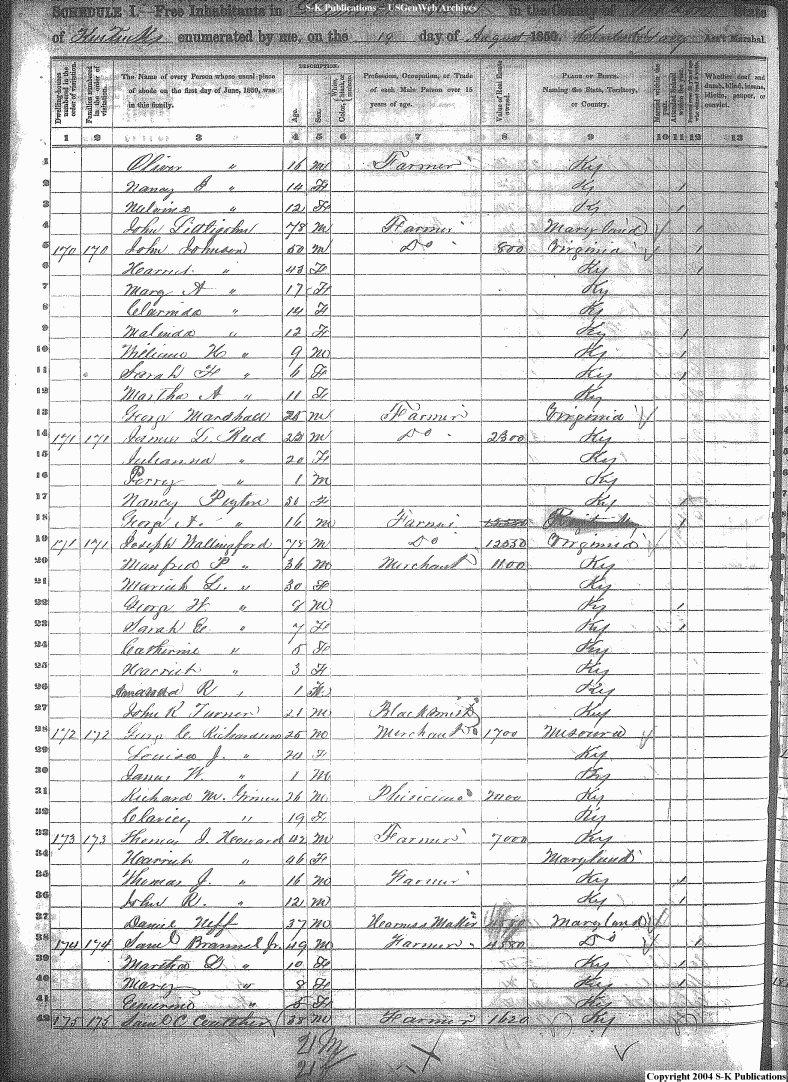 S-K Publications -- USGenWeb Archives
SCHEDULE I.—Free Inhabitants in in the County of State
of Kentucky enumerated by me, on the 19 day of August 1850. Ass't Marshal.
Dwelling-houses numbered in the order of visitation. Families numbered in the order of visitation. The Name of every Person whose usual place of abode on the first day of June, 1850, was in this family. DESCRIPTION. Age. Sex. Color, White, black, or mulatto. Profession, Occupation, or Trade of each Male Person over 15 years of age. Value of Real Estate owned. PLACE OF BIRTH. Naming the State, Territory, or Country. Married within the year. Attended School within the year. Whether deaf and dumb, blind, insane, idiotic, pauper, or convict.
1 2 3 4 5 6 7 8 9 10 11 12 13
1 Oliver " 16 M Farmer Ky
2 Nancy J " 14 F Ky 1
3 Melvina " 12 F Ky 1
4 John Littlejohn 78 M Farmer Maryland 1
5 170 170 John Johnson 50 M Do 800 Virginia 1
6 Harriet " 45 F Ky 1
7 Mary A " 17 F Ky
8 Clarinda " 14 F Ky
9 Malinda " 12 F Ky 1
10 William H " 9 M Ky 1
11 Sarah F " 6 F Ky 1
12 Martha A " 11 F Ky
13 Georg Marshall 25 M Farmer Virginia
14 171 171 James L. Reed 22 M Do 2300 Ky
15 Julianna " 20 F Ky
16 Perry " 1 M Ky
17 Nancy Peyton 50 F Ky 1
18 Georg A. " 16 M Farmer 1
19 171 171 Joseph Wallingford 78 M Do 12550 Virginia
20 Manfred P " 36 M Merchant 1100 Ky
21 Mariah L. " 30 F Ky
22 Georg W " 8 M Ky 1
23 Sarah E " 7 F Ky 1
24 Catherine " 5 F Ky
25 Harriet " 3 F Ky
26 R " 1 F Ky
27 John K Turner 21 M Blacksmith Ky
28 172 172 Georg C. Richardson 25 M Merchant 1700 Misoura
29 Louisa J. " 20 F Ky
30 James W. " 1 M Ky
31 Richard M. Grimes 36 M Phisician 2100 Ky
32 Claricy " 19 F Ky
33 173 173 Thomas J. Howard 42 M Farmer 7000 Ky
34 Harriet " 46 F Maryland
35 Thomas J. " 16 M Farmer Ky 1
36 John R. " 12 M Ky 1
37 Daniel Neff 37 M Harness Maker Maryland
38 174 174 Saml Brammel Jr. 49 M Farmer 4580 Do 1
39 Martha D " 10 F Ky 1
40 Mary " 8 F Ky 1
41 " 5 F Ky
42 175 175 Saml C 38 M Farmer 1620 Ky
21 M
21 F
Copyright 2004 S-K Publications